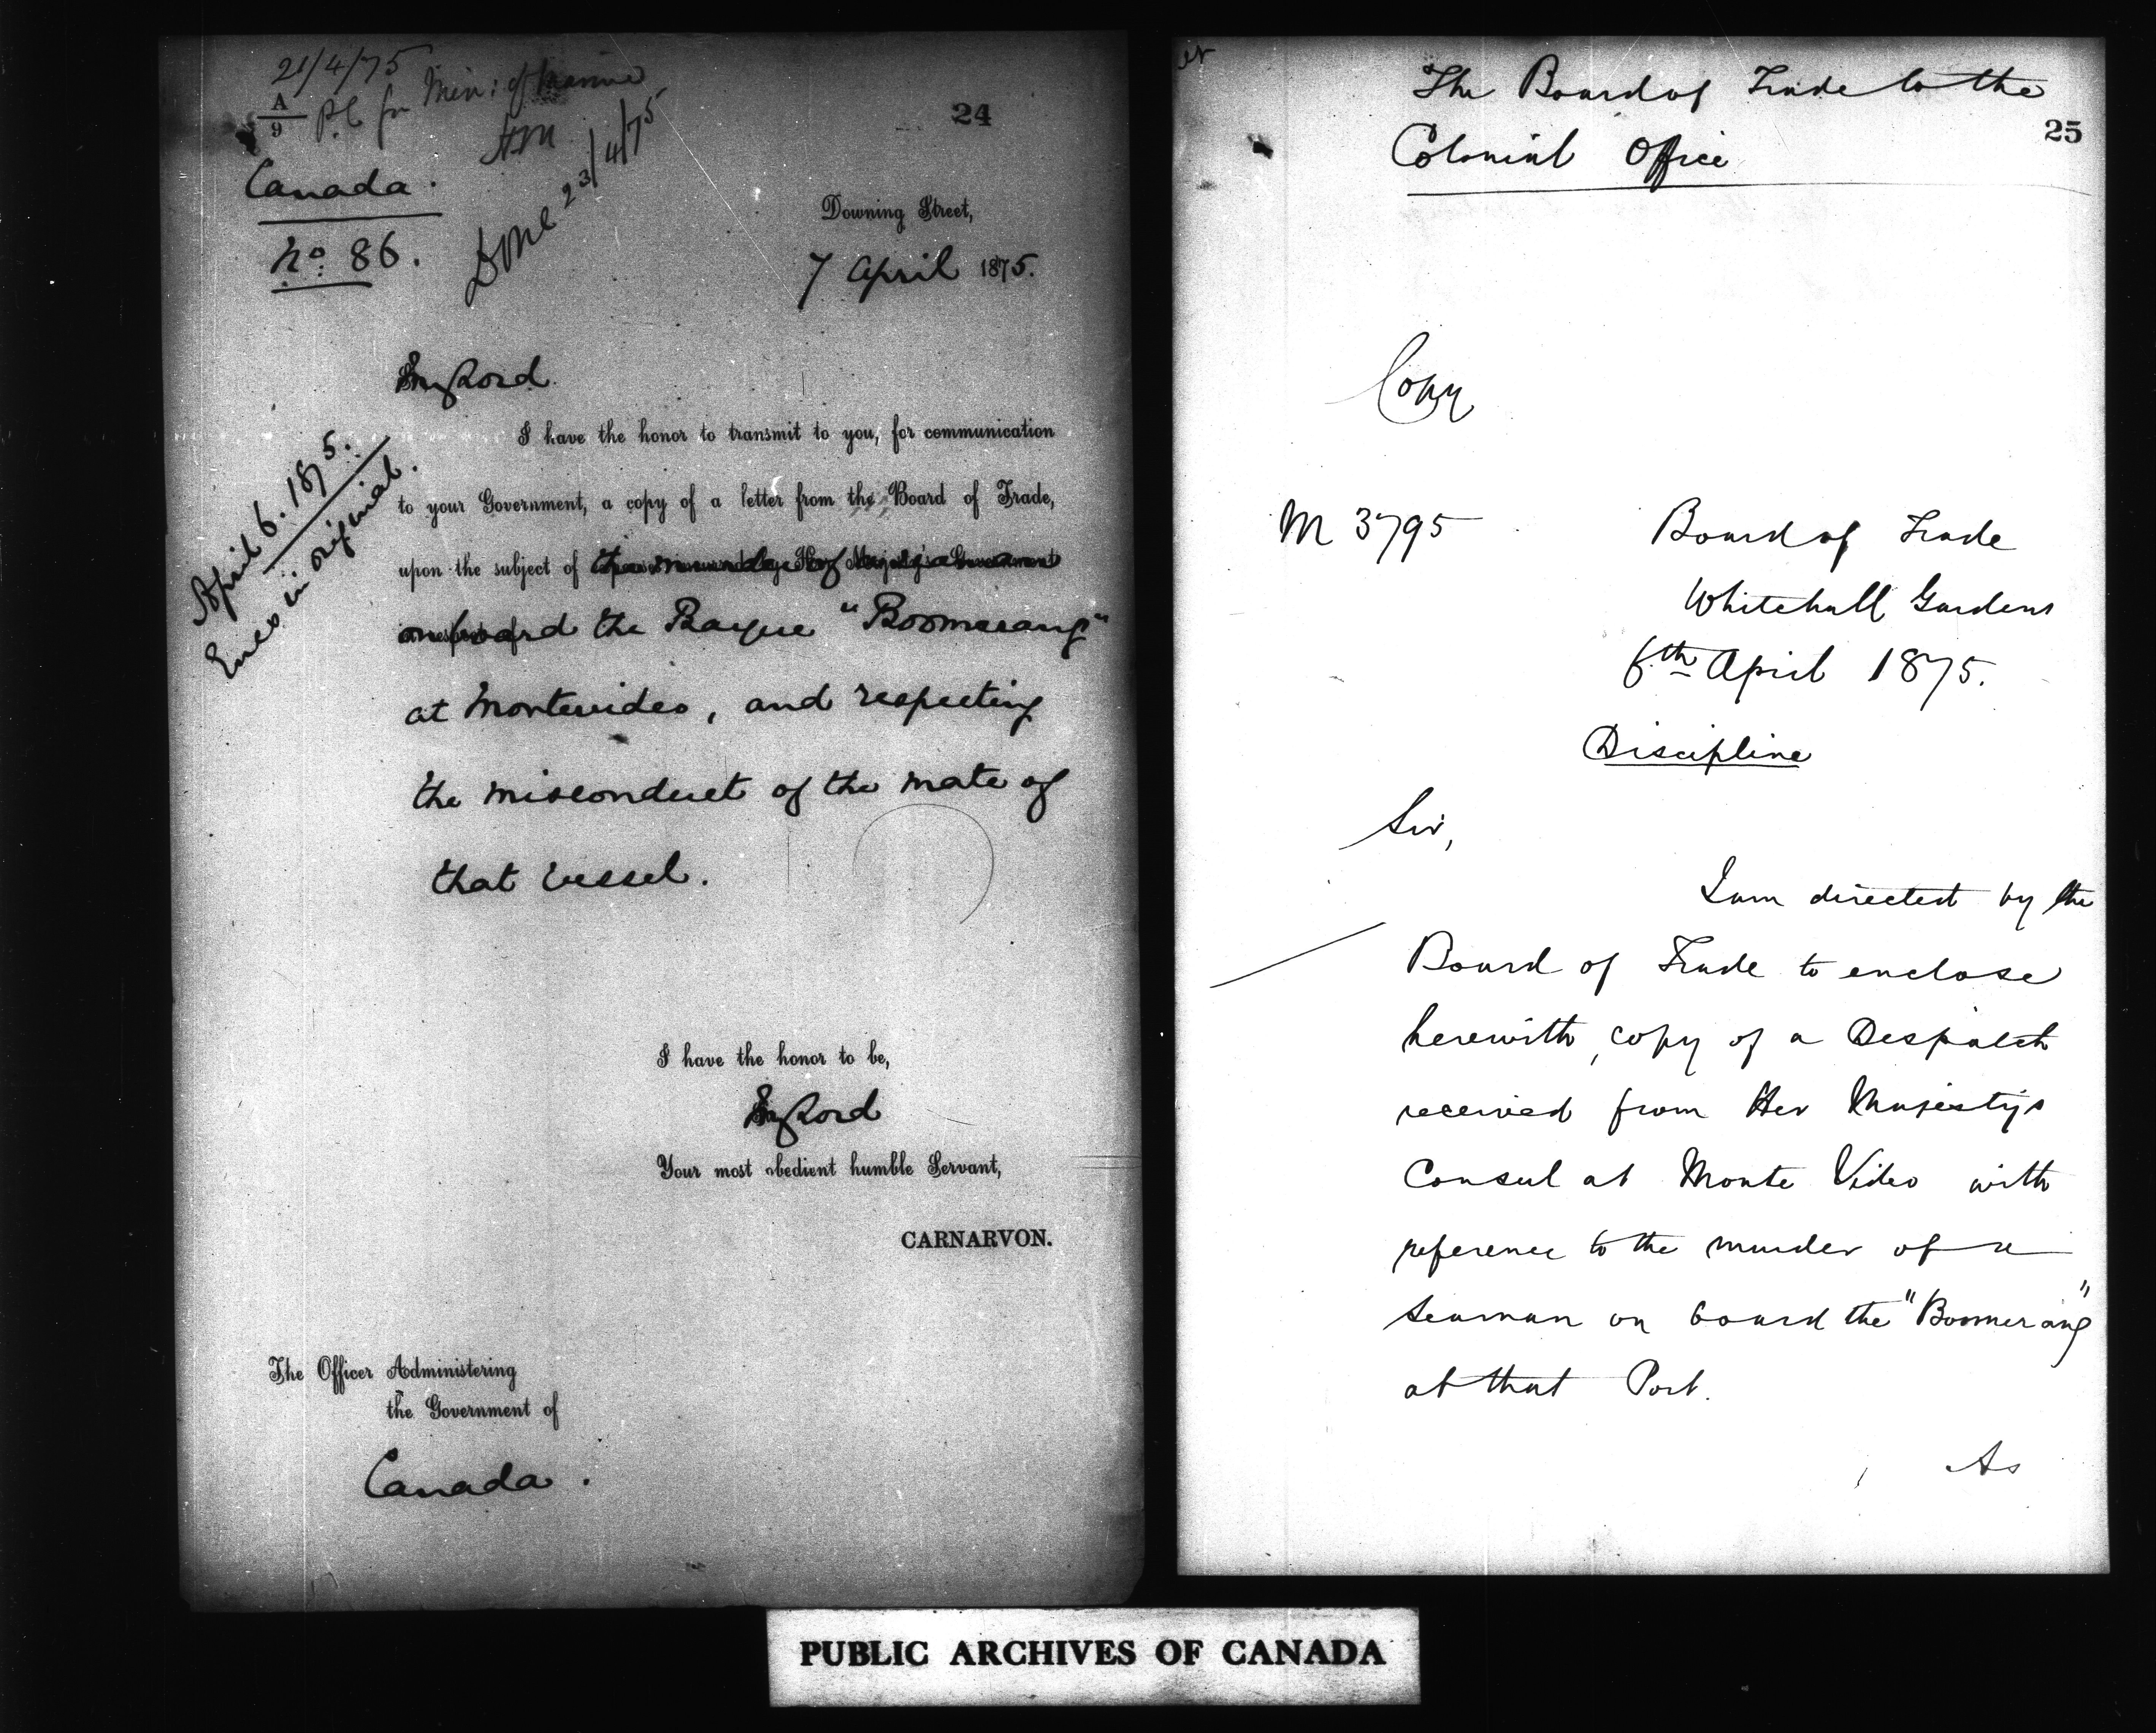 21/4/75
A
9
P.C. for Min: of Marine
Done 23/4/75
24
Canada.
No. 86.
Downing Street,
7 April 1875.
My Lord
I have the honor to transmit to you, for communication
to your Government, a copy of a letter from the Board of Trade,
upon the subject of the murder of
on board the Barque "Boomerang"
at Montevideo, and respecting
the misconduct of the mate of
that vessel.
April 6. 1875.
Encs in original.
I have the honor to be,
My Lord
Your most obedient humble Servant,
CARNARVON.
The Officer Administering
the Government of
Canada.
The Board of Trade to the
Colonial Office
25
Copy
M 3795
Board of Trade
Whitehall Gardens
6th April 1875.
Discipline
Sir,
I am directed by the
Board of Trade to enclose
herewith, copy of a Despatch
received from Her Majestys
Consul at Monte Video with
reference to the murder of a
Seaman on board the "Boomerang"
at that Port.
As
PUBLIC ARCHIVES OF CANADA